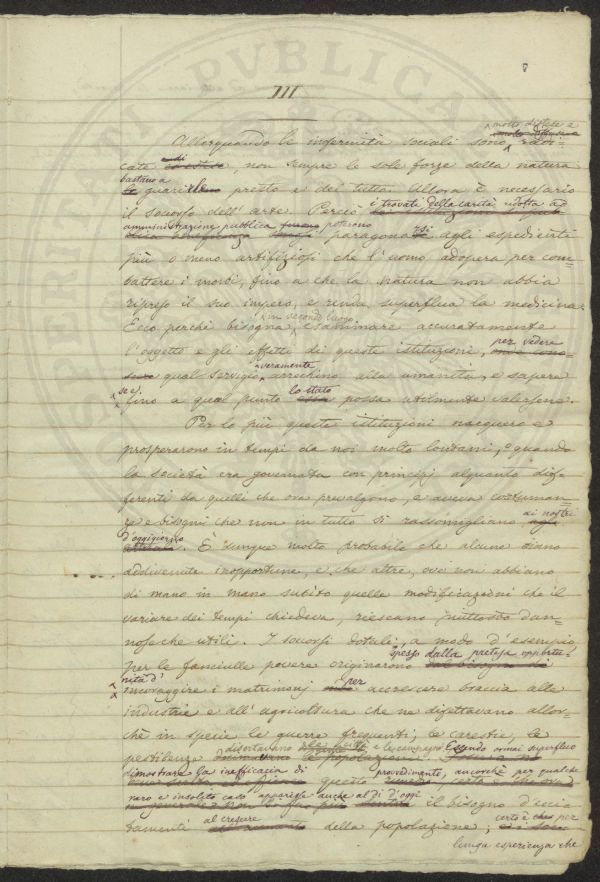 III
Allorquando le infermità sociali sono molto diffuse e radi-
cate, non sempre le sole forze della natura
bastano a guarirle presto e del tutto. Allora è necessario
il soccorso dell'arte. Perciò i trovati della carità ridotta ad
amministrazione pubblica potrono paragonarsi agli espedienti
più o meno artifiziosi che l'uomo adopera per com-
battere i morbi, fino a che la natura non abbia
ripreso il suo impero, e renda superflua la medicina.
Ecco perché bisogna in secondo luogo, esaminare accuratamente
l'oggetto e gli effetti di queste istituzioni, per vedere
qual servigio veramente arrechino alla umanità, e sapere
fino a qual punto lo stato possa utilmente valersene.
Per lo più queste istituzioni nacquero e
prosperarono in tempi da noi molto lontani, quando
la società era governata con principj alquanto dif-
ferenti da quelli che ora prevalgono, e aveva costuman-
ze e bisogni che non in tutto si rassomigliano ai nostri
d'oggigiorno. È dunque molto probabile che alcune siano
addivenute inopportune, e che altre, ove non abbiano
di mano in mano subito quelle modificazioni che il
variare dei tempi chiedeva, riescano piuttosto dan-
nose che utili. I soccorsi dotali, a modo d'esempio,
per le fanciulle povere originarono spesso dalla pretesa opportu-
nità d'incoraggire i matrimonj per accrescere braccia alle
industrie e all'agricoltura che ne difettavano allor-
chè in specie le guerre frequenti, le carestie, le
pestilenze disertavano e le campagne. Essendo ormai superfluo
dimostrare la inefficacia di questo provedimento, ancorchè per qualche
raro e insolito caso apparisse anche al dì d'oggi il bisogno d'ecci-
tamenti al crescere della popolazione; certo è che per
lunga esperienza che